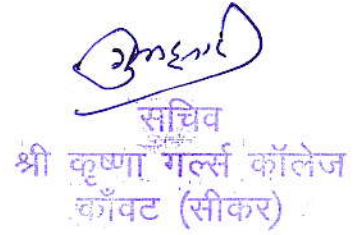 सचिव
श्री कृष्णा गर्ल्स कॉलेज
काँवट (सीकर)